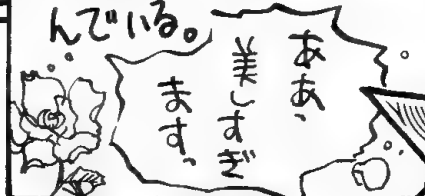 んでいる。
ああ、
美しすぎ
ます。